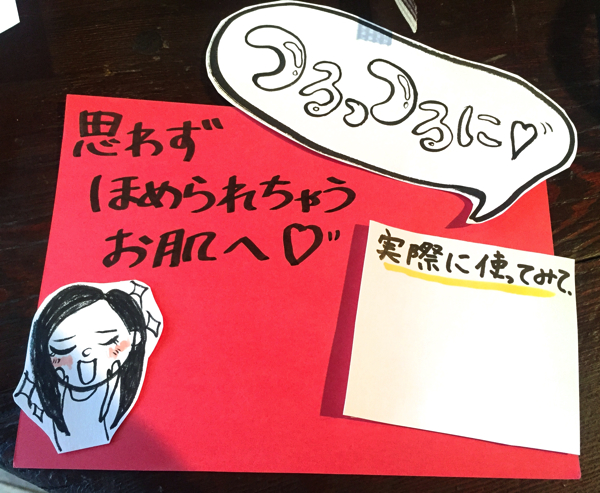 つるっつるに♡
思わず
ほめられちゃう
お肌へ♡
実際に使ってみて、